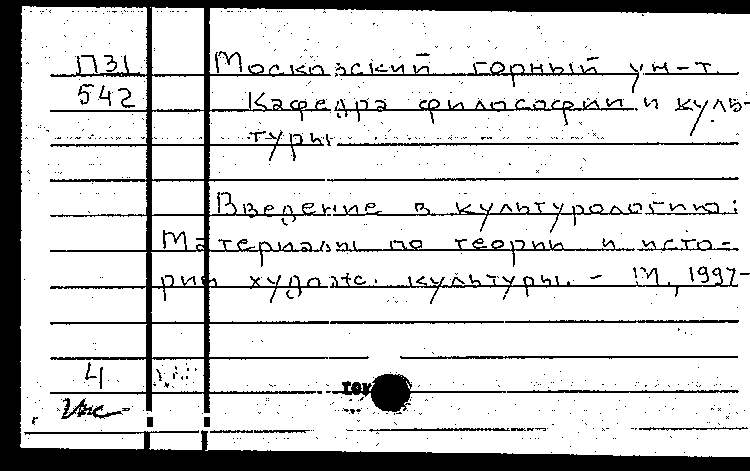 П31 Московский горный ун-т.
542 Кафедра философии и куль-
туры.
Введение в культурологию:
Материалы по теории и исто-
рии худож. культуры. - М., 1997-
4